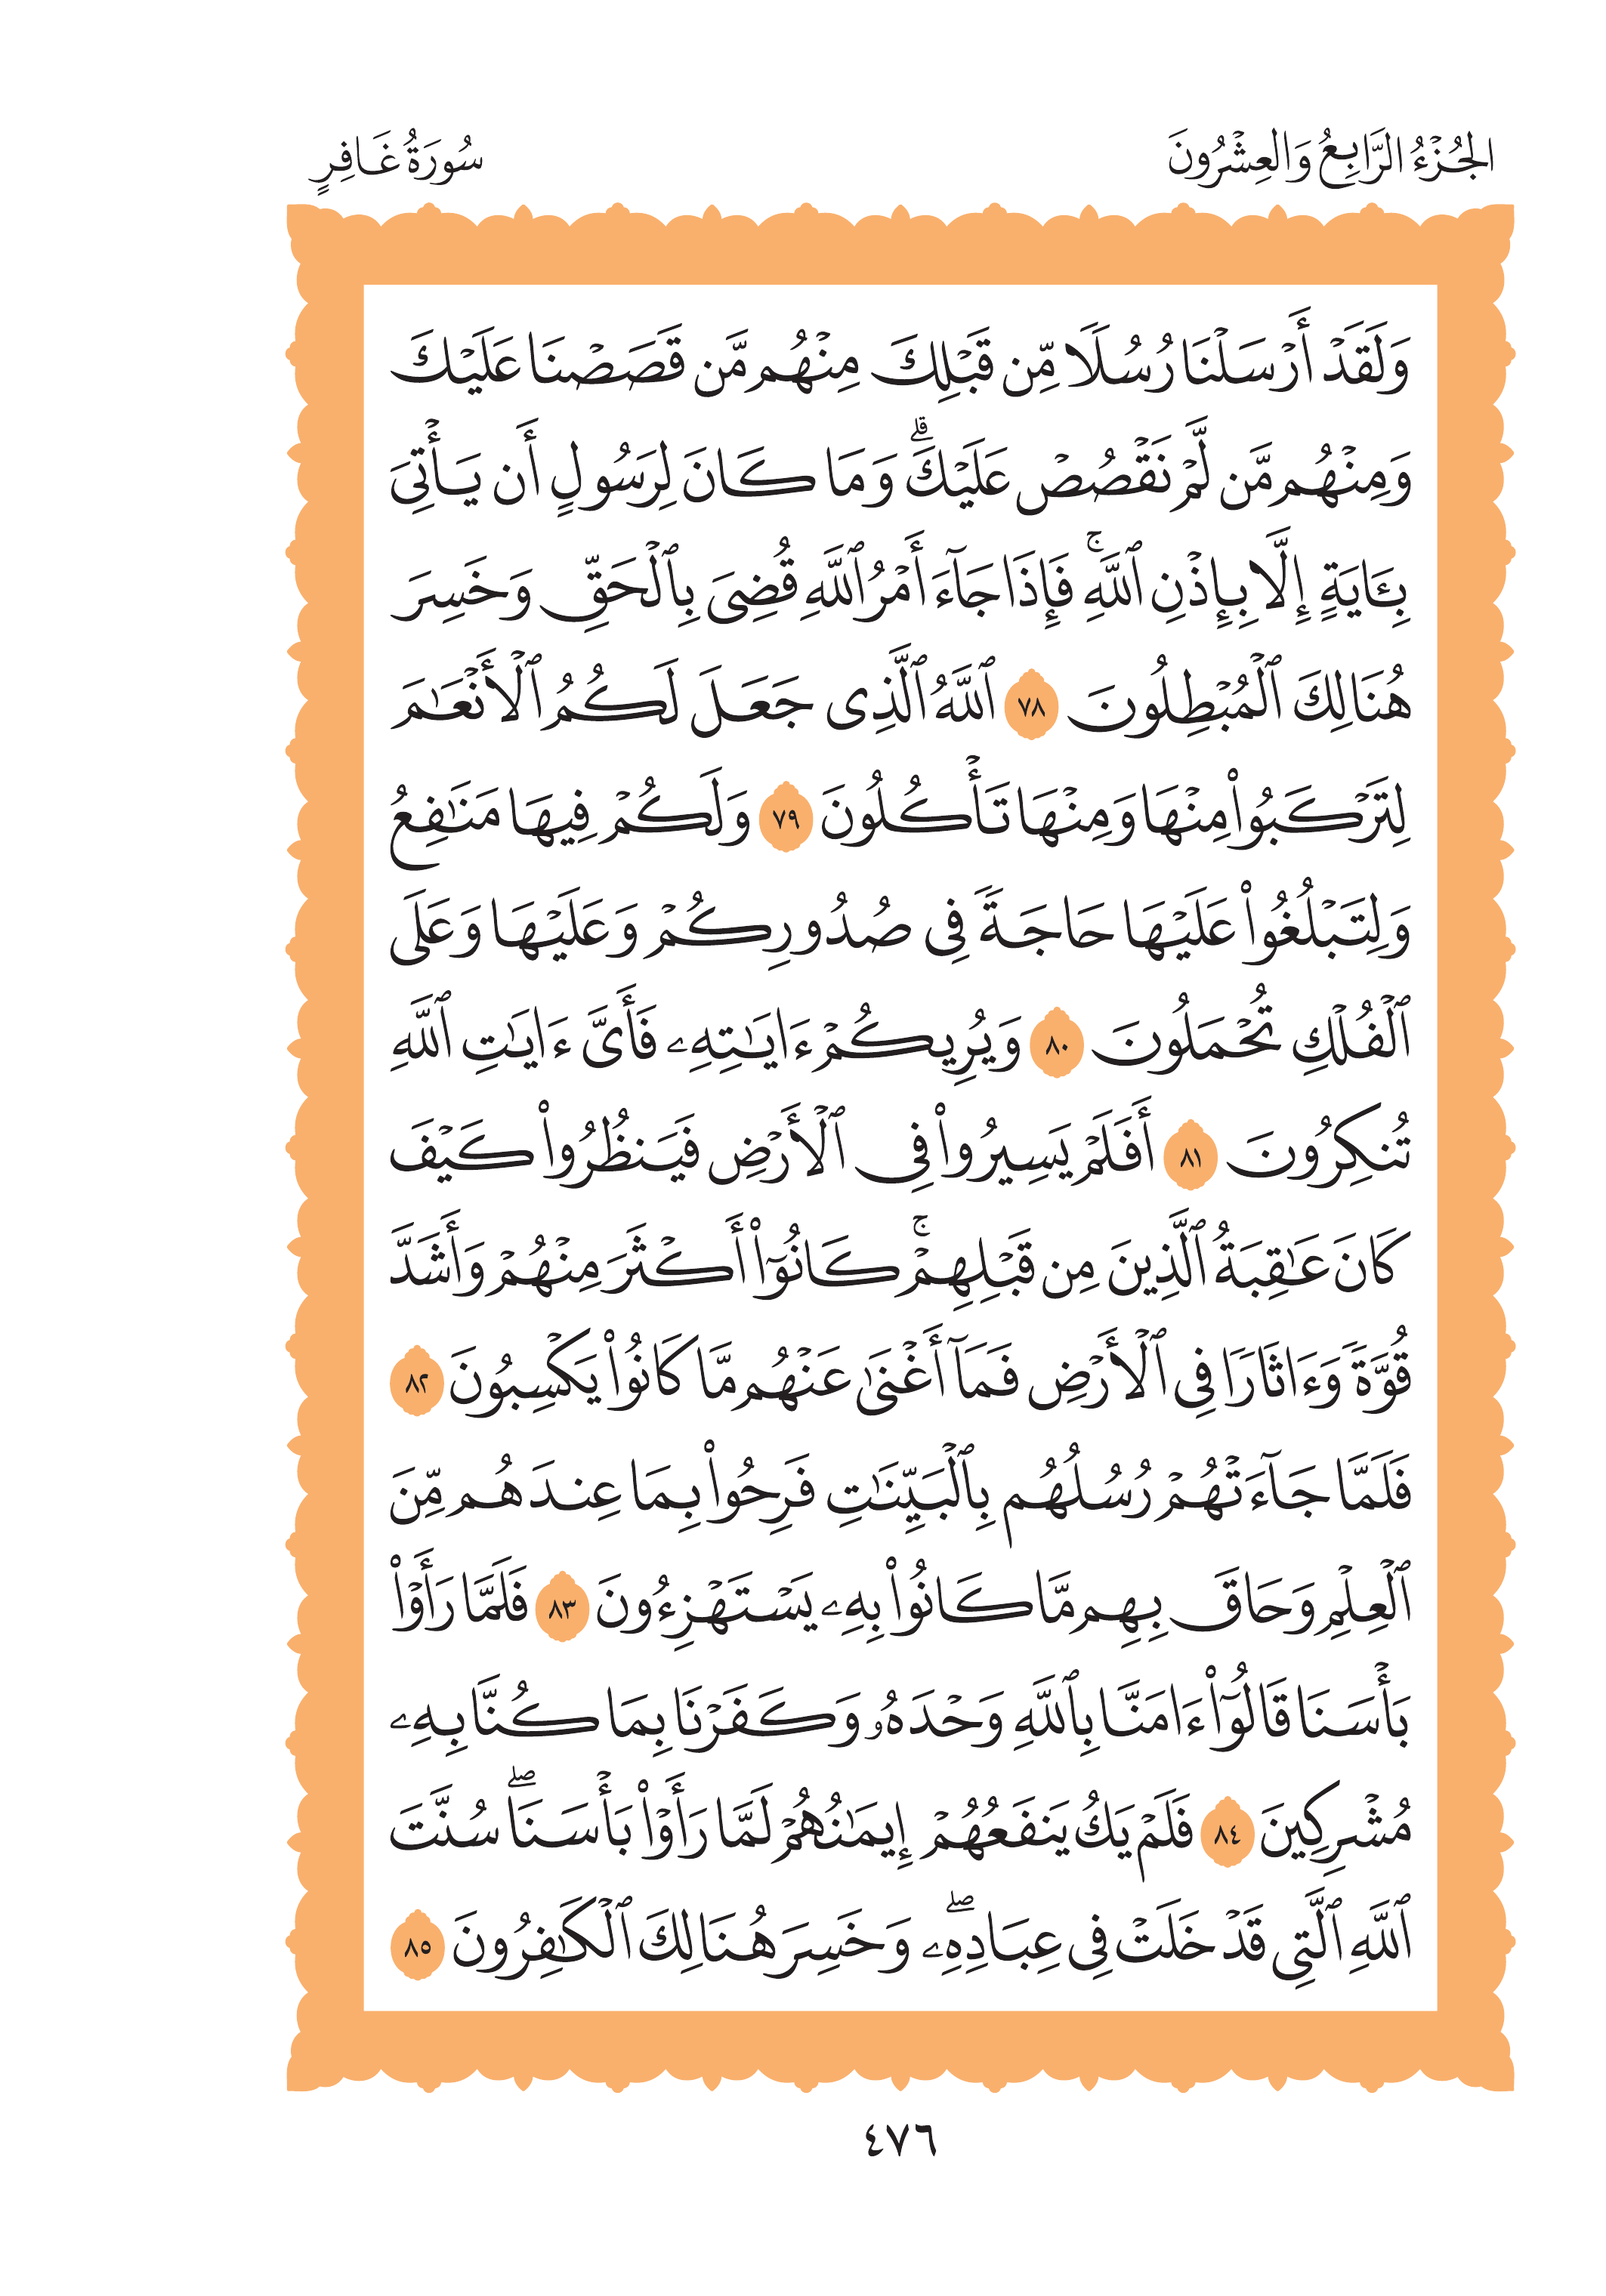 الجُزْءُ الرَّابِعُ وَالعِشْرُونَ
سُورَةُ غَافِرٍ
وَلَقَدْ أَرْسَلْنَا رُسُلًا مِّن قَبْلِكَ مِنْهُم مَّن قَصَصْنَا عَلَيْكَ
وَمِنْهُم مَّن لَّمْ نَقْصُصْ عَلَيْكَۗ وَمَا كَانَ لِرَسُولٍ أَن يَأْتِىَ
بِـَٔايَةٍ إِلَّا بِإِذْنِ ٱللَّهِۚ فَإِذَا جَآءَ أَمْرُ ٱللَّهِ قُضِىَ بِٱلْحَقِّ وَخَسِرَ
هُنَالِكَ ٱلْمُبْطِلُونَ ٧٨ ٱللَّهُ ٱلَّذِى جَعَلَ لَكُمُ ٱلْأَنْعَٰمَ
لِتَرْكَبُوا۟ مِنْهَا وَمِنْهَا تَأْكُلُونَ ٧٩ وَلَكُمْ فِيهَا مَنَٰفِعُ
وَلِتَبْلُغُوا۟ عَلَيْهَا حَاجَةً فِى صُدُورِكُمْ وَعَلَيْهَا وَعَلَى
ٱلْفُلْكِ تُحْمَلُونَ ٨٠ وَيُرِيكُمْ ءَايَٰتِهِۦ فَأَىَّ ءَايَٰتِ ٱللَّهِ
تُنكِرُونَ ٨١ أَفَلَمْ يَسِيرُوا۟ فِى ٱلْأَرْضِ فَيَنظُرُوا۟ كَيْفَ
كَانَ عَٰقِبَةُ ٱلَّذِينَ مِن قَبْلِهِمْۚ كَانُوٓا۟ أَكْثَرَ مِنْهُمْ وَأَشَدَّ
قُوَّةً وَءَاثَارًا فِى ٱلْأَرْضِ فَمَآ أَغْنَىٰ عَنْهُم مَّا كَانُوا۟ يَكْسِبُونَ ٨٢
فَلَمَّا جَآءَتْهُمْ رُسُلُهُم بِٱلْبَيِّنَٰتِ فَرِحُوا۟ بِمَا عِندَهُم مِّنَ
ٱلْعِلْمِ وَحَاقَ بِهِم مَّا كَانُوا۟ بِهِۦ يَسْتَهْزِءُونَ ٨٣ فَلَمَّا رَأَوْا۟
بَأْسَنَا قَالُوٓا۟ ءَامَنَّا بِٱللَّهِ وَحْدَهُۥ وَكَفَرْنَا بِمَا كُنَّا بِهِۦ
مُشْرِكِينَ ٨٤ فَلَمْ يَكُ يَنفَعُهُمْ إِيمَٰنُهُمْ لَمَّا رَأَوْا۟ بَأْسَنَاۖ سُنَّتَ
ٱللَّهِ ٱلَّتِى قَدْ خَلَتْ فِى عِبَادِهِۦۖ وَخَسِرَ هُنَالِكَ ٱلْكَٰفِرُونَ ٨٥
٤٧٦